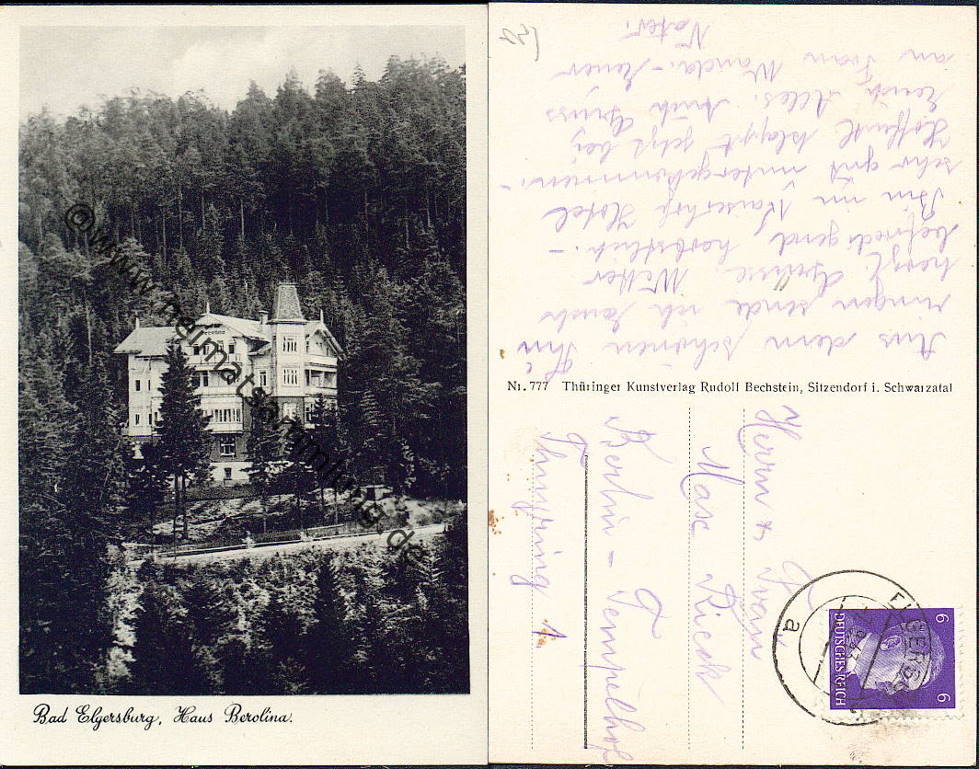 Bad Elgersburg, Haus Berolina.
© www.heimatsammlung.de
Aus dem schönen Thü
ringen sende ich
herzl. Grüsse. Wetter
befriedigend, herbstlich. -
Bin im Kaiserhof Hotel
sehr gut untergekommen. -
Hoffentl. klappt jetzt bei
Euch Alles. Auch Gruss
an Frau Wanda. -
Vater.
Nr. 777 Thüringer Kunstverlag Rudolf Bechstein, Sitzendorf i. Schwarzatal
Herrn & Frau
Max Rieck
Berlin - Tempelhof
Thuyring 1
ELGERSBURG
a
DEUTSCHES REICH
6
6